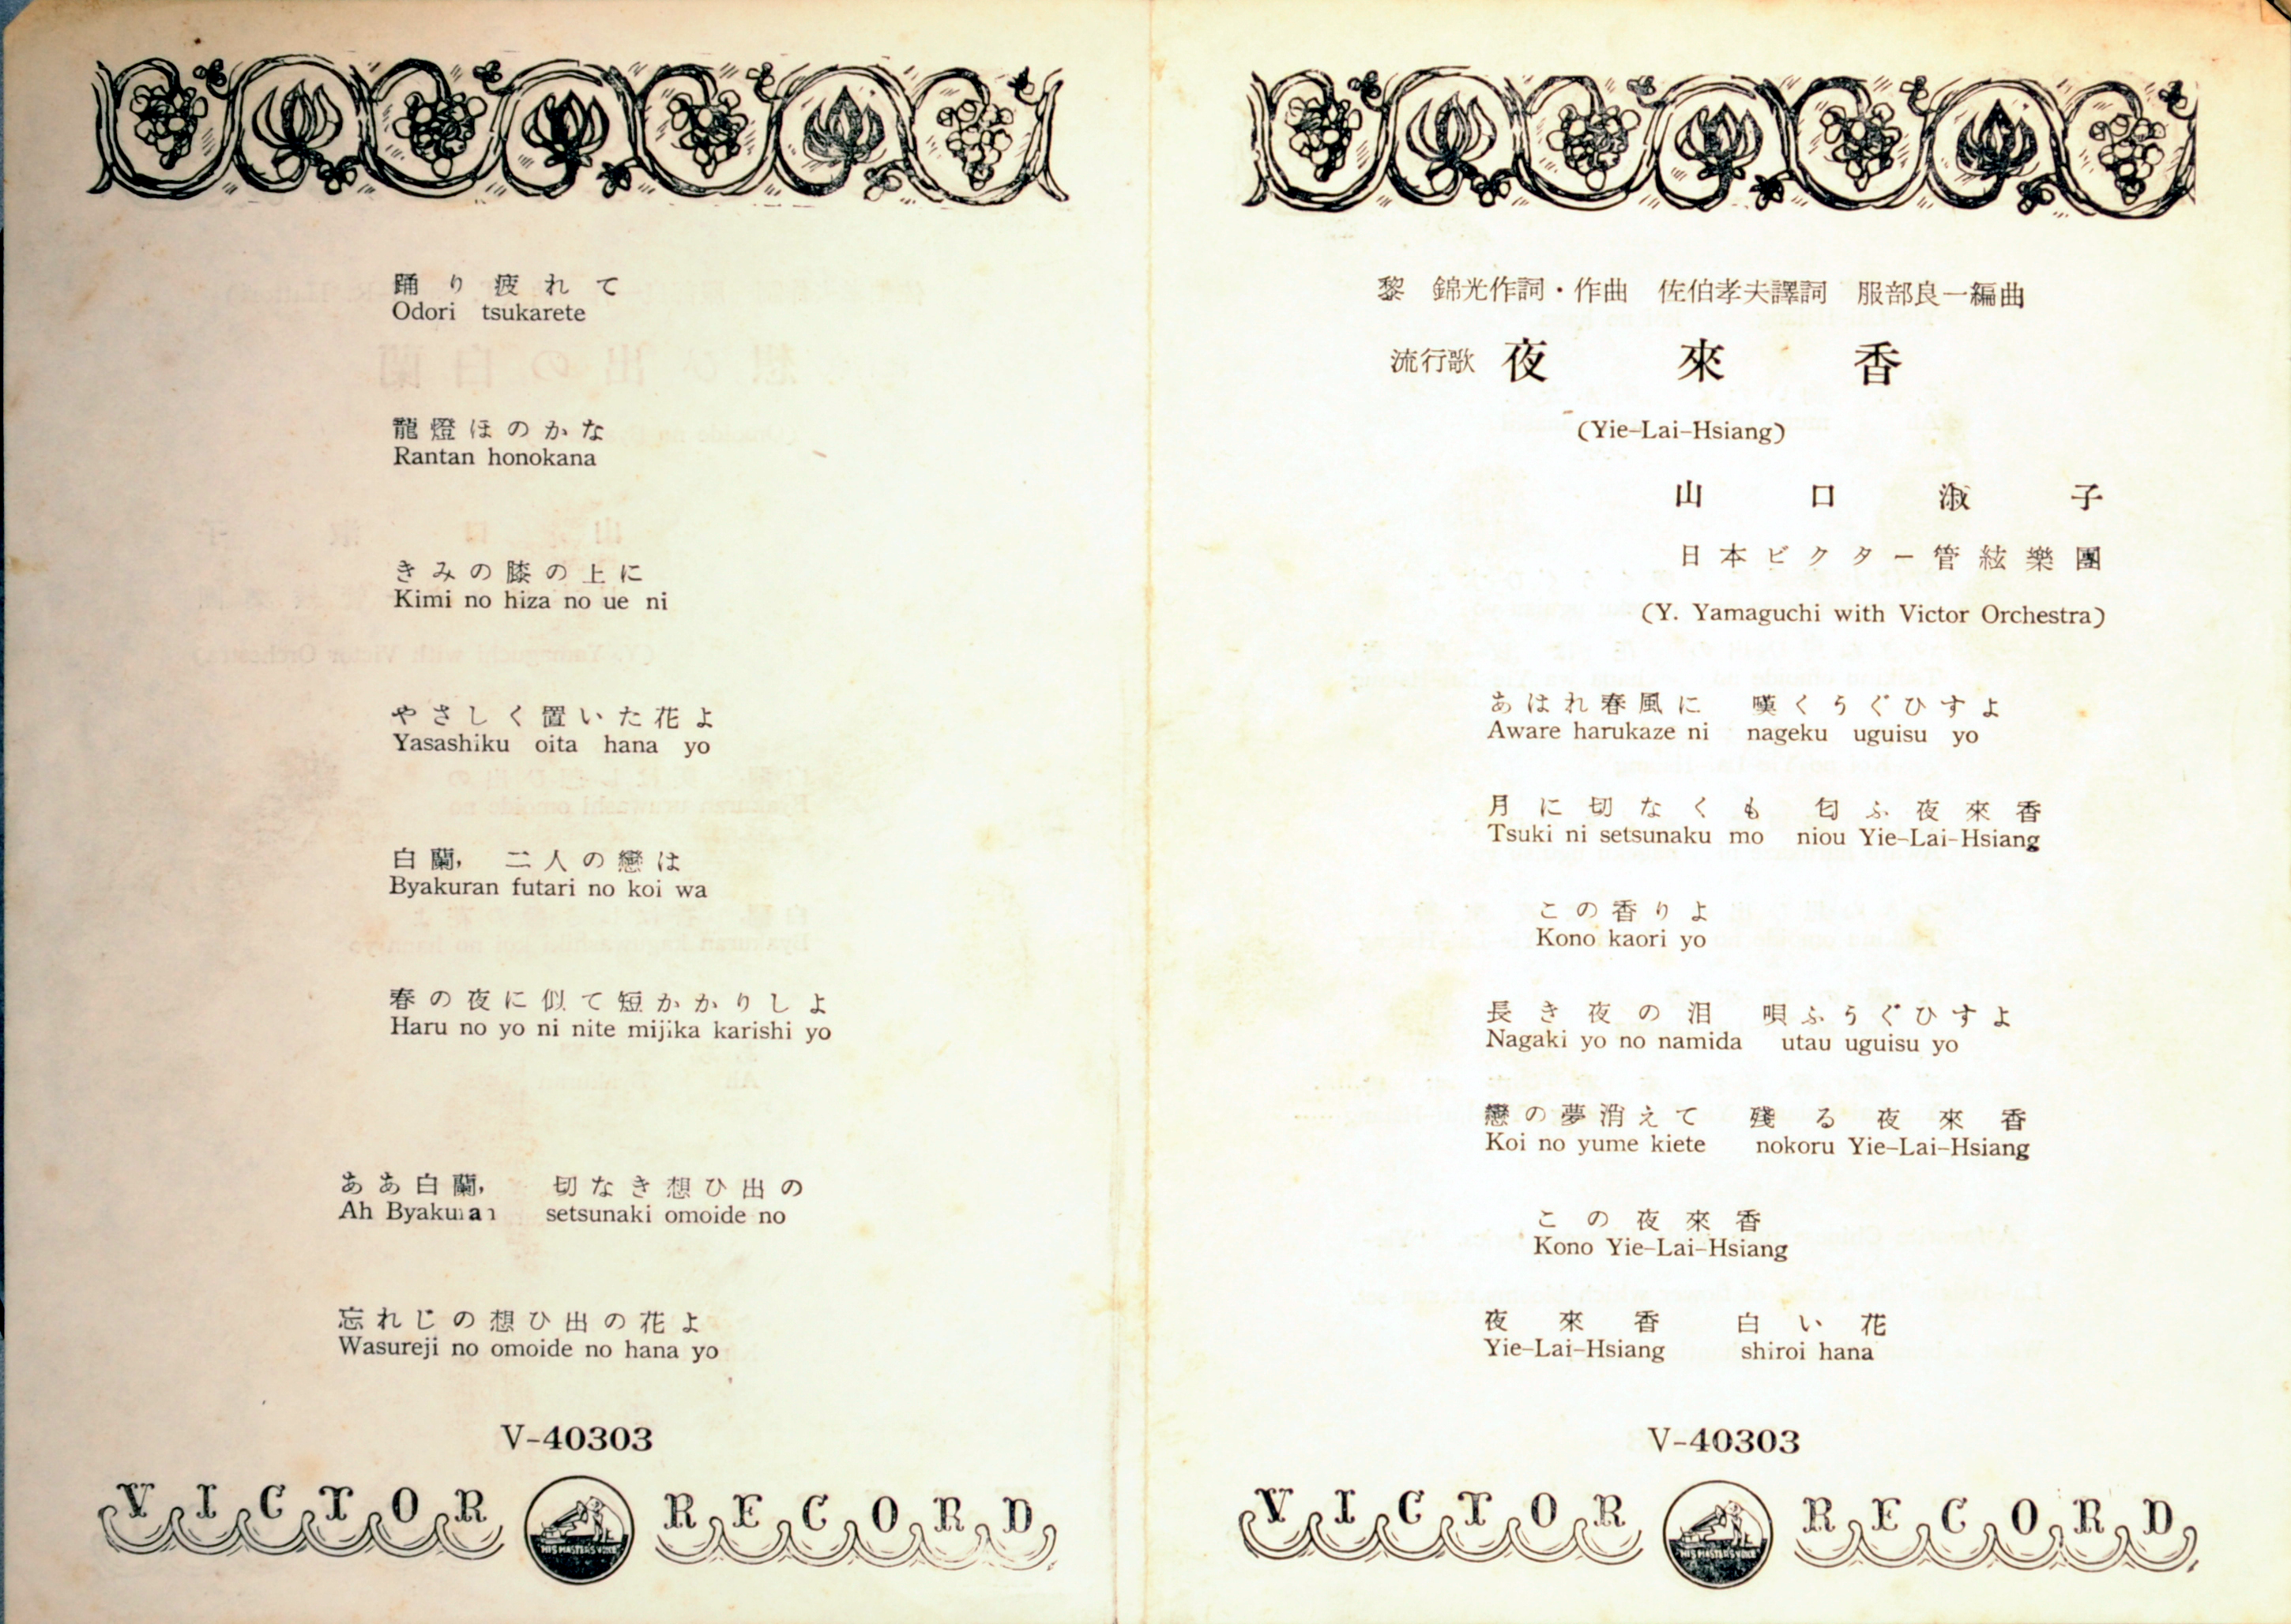 踊り疲れて
Odori tsukarete
龍燈ほのかな
Rantan honokana
きみの膝の上に
Kimi no hiza no ue ni
やさしく置いた花よ
Yasashiku oita hana yo
白蘭, 二人の戀は
Byakuran futari no koi wa
春の夜に似て短かかりしよ
Haru no yo ni nite mijika karishi yo
ああ白蘭, 切なき想ひ出の
Ah Byakuran setsunaki omoide no
忘れじの想ひ出の花よ
Wasureji no omoide no hana yo
V-40303
VICTOR RECORD
HIS MASTER'S VOICE
黎 錦光作詞・作曲 佐伯孝夫譯詞 服部良一編曲
流行歌 夜來香
(Yie-Lai-Hsiang)
山口淑子
日本ビクター管絃樂團
(Y. Yamaguchi with Victor Orchestra)
あはれ春風に 嘆くうぐひすよ
Aware harukaze ni nageku uguisu yo
月に切なくも 匂ふ夜來香
Tsuki ni setsunaku mo niou Yie-Lai-Hsiang
この香りよ
Kono kaori yo
長き夜の泪 唄ふうぐひすよ
Nagaki yo no namida utau uguisu yo
戀の夢消えて 殘る夜來香
Koi no yume kiete nokoru Yie-Lai-Hsiang
この夜來香
Kono Yie-Lai-Hsiang
夜來香 白い花
Yie-Lai-Hsiang shiroi hana
V-40303
VICTOR RECORD
HIS MASTER'S VOICE